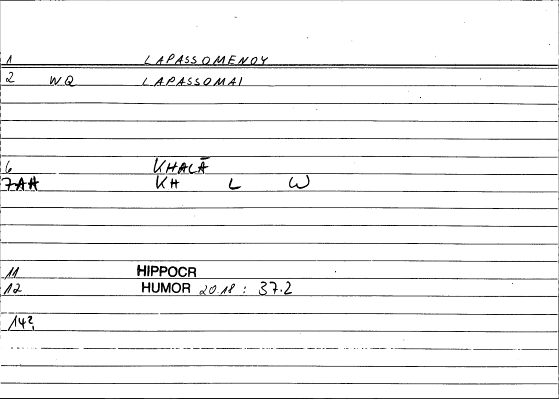 1 LAPASSOMENOY
2 WQ LAPASSOMAI
6 KHALĀ
7AA KH L W
11 HIPPOCR
12 HUMOR 20.18 : 37.2
14?